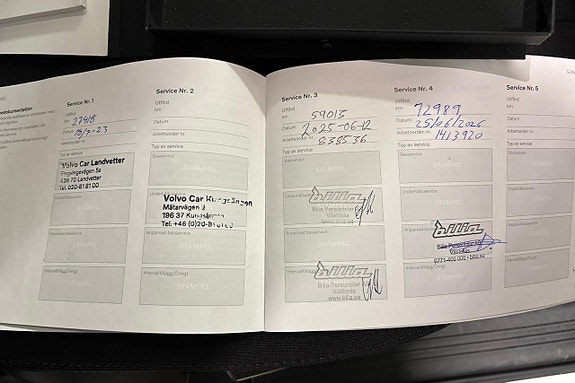 Service Nr. 1
Utförd
km 27418
Datum 15/9-23
Arbetsorder nr.
Typ av service
Volvo Car Landvetter
438 70 Landvetter
Tel. 020-81 81 00
STÄMPEL
Intervalltillägg/Övrigt
STÄMPEL
Service Nr. 2
Utförd
km
Datum
Arbetsorder nr.
Typ av service
Basservice
STÄMPEL
Volvo Car Kungsängen
Mätarvägen
196 37 Kungsängen
Tel. +46 (0)20-81
Anpassad basservice
STÄMPEL
Intervalltillägg/Övrigt
STÄMPEL
Service Nr. 3
Utförd
km 59013
Datum 2025-06-12
Arbetsorder nr. 835536
Typ av service
Basservice
STÄMPEL
Underhållsservice
bilia
Bilia Personbilar
Västerås
www.bilia.se
Anpassad basservice
STÄMPEL
bilia
Bilia Personbilar
Västerås
www.bilia.se
Service Nr. 4
Utförd
km 72989
Datum 25/06/2026
Arbetsorder nr. 1413920
Typ av service
Basservice
STÄMPEL
Underhållsservice
STÄMPEL
Anpassad basservice
bilia
Bilia Personbilar
Västerås
0771-400 000 • bilia.se
Intervalltillägg/Övrigt
STÄMPEL
Service Nr. 5
Utförd
km
Datum
Arbetsorder nr.
Typ av service
Basservice
Underhållsservice
Anpassad basservice
Intervalltillägg/Övrigt